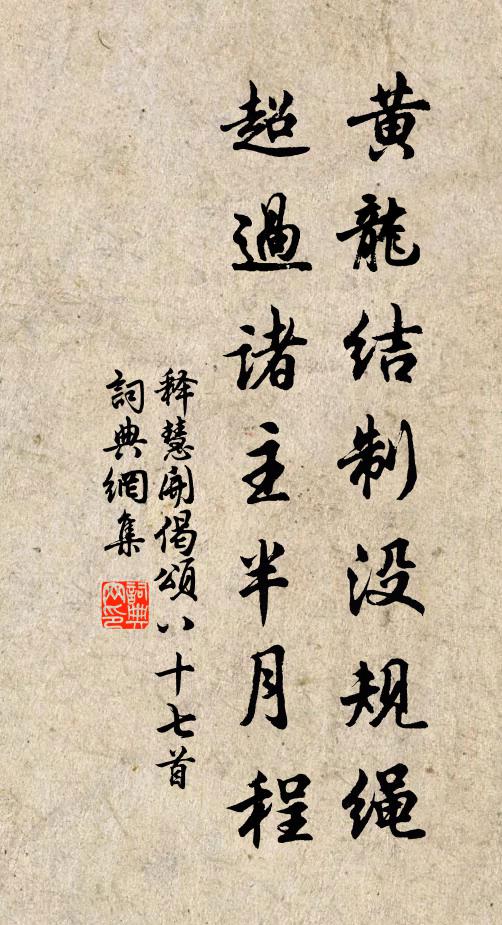 黄龍结制没规绳
超過诸主半月程
释慧開偈頌八十七首
詞典網集
詞典
网印